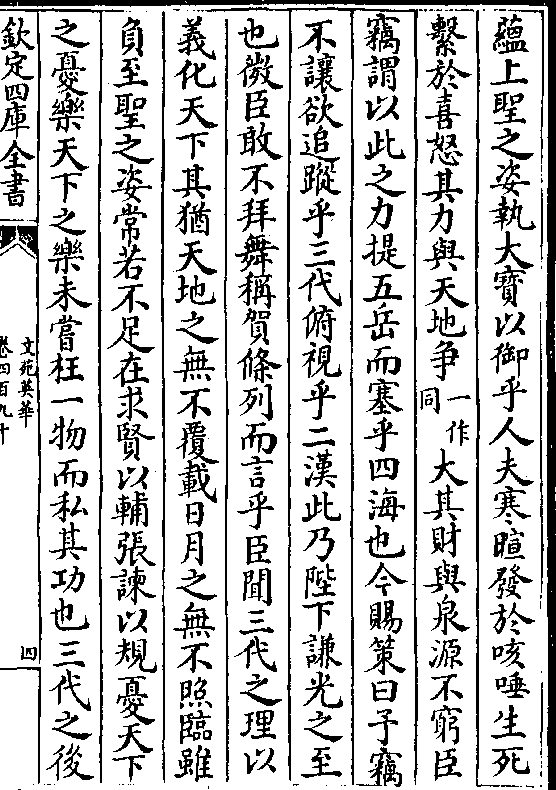 蘊上聖之姿執大寶以御乎人夫寒暄發於咳唾生死
繫於喜怒其力與天地争一作同大其財與泉源不窮臣
竊謂以此之力提五岳而塞乎四海也今賜策曰子竊
不讓欲追蹤乎三代俯視乎二漢此乃陛下謙光之至
也微臣敢不拜舞稱賀條列而言乎臣聞三代之理以
義化天下其猶天地之無不覆載日月之無不照臨雖
負至聖之姿常若不足在求賢以輔張諫以規憂天下
之憂樂天下之樂未嘗枉一物而私其功也三代之後
欽定四庫全書
文苑英華
卷四百九十
四